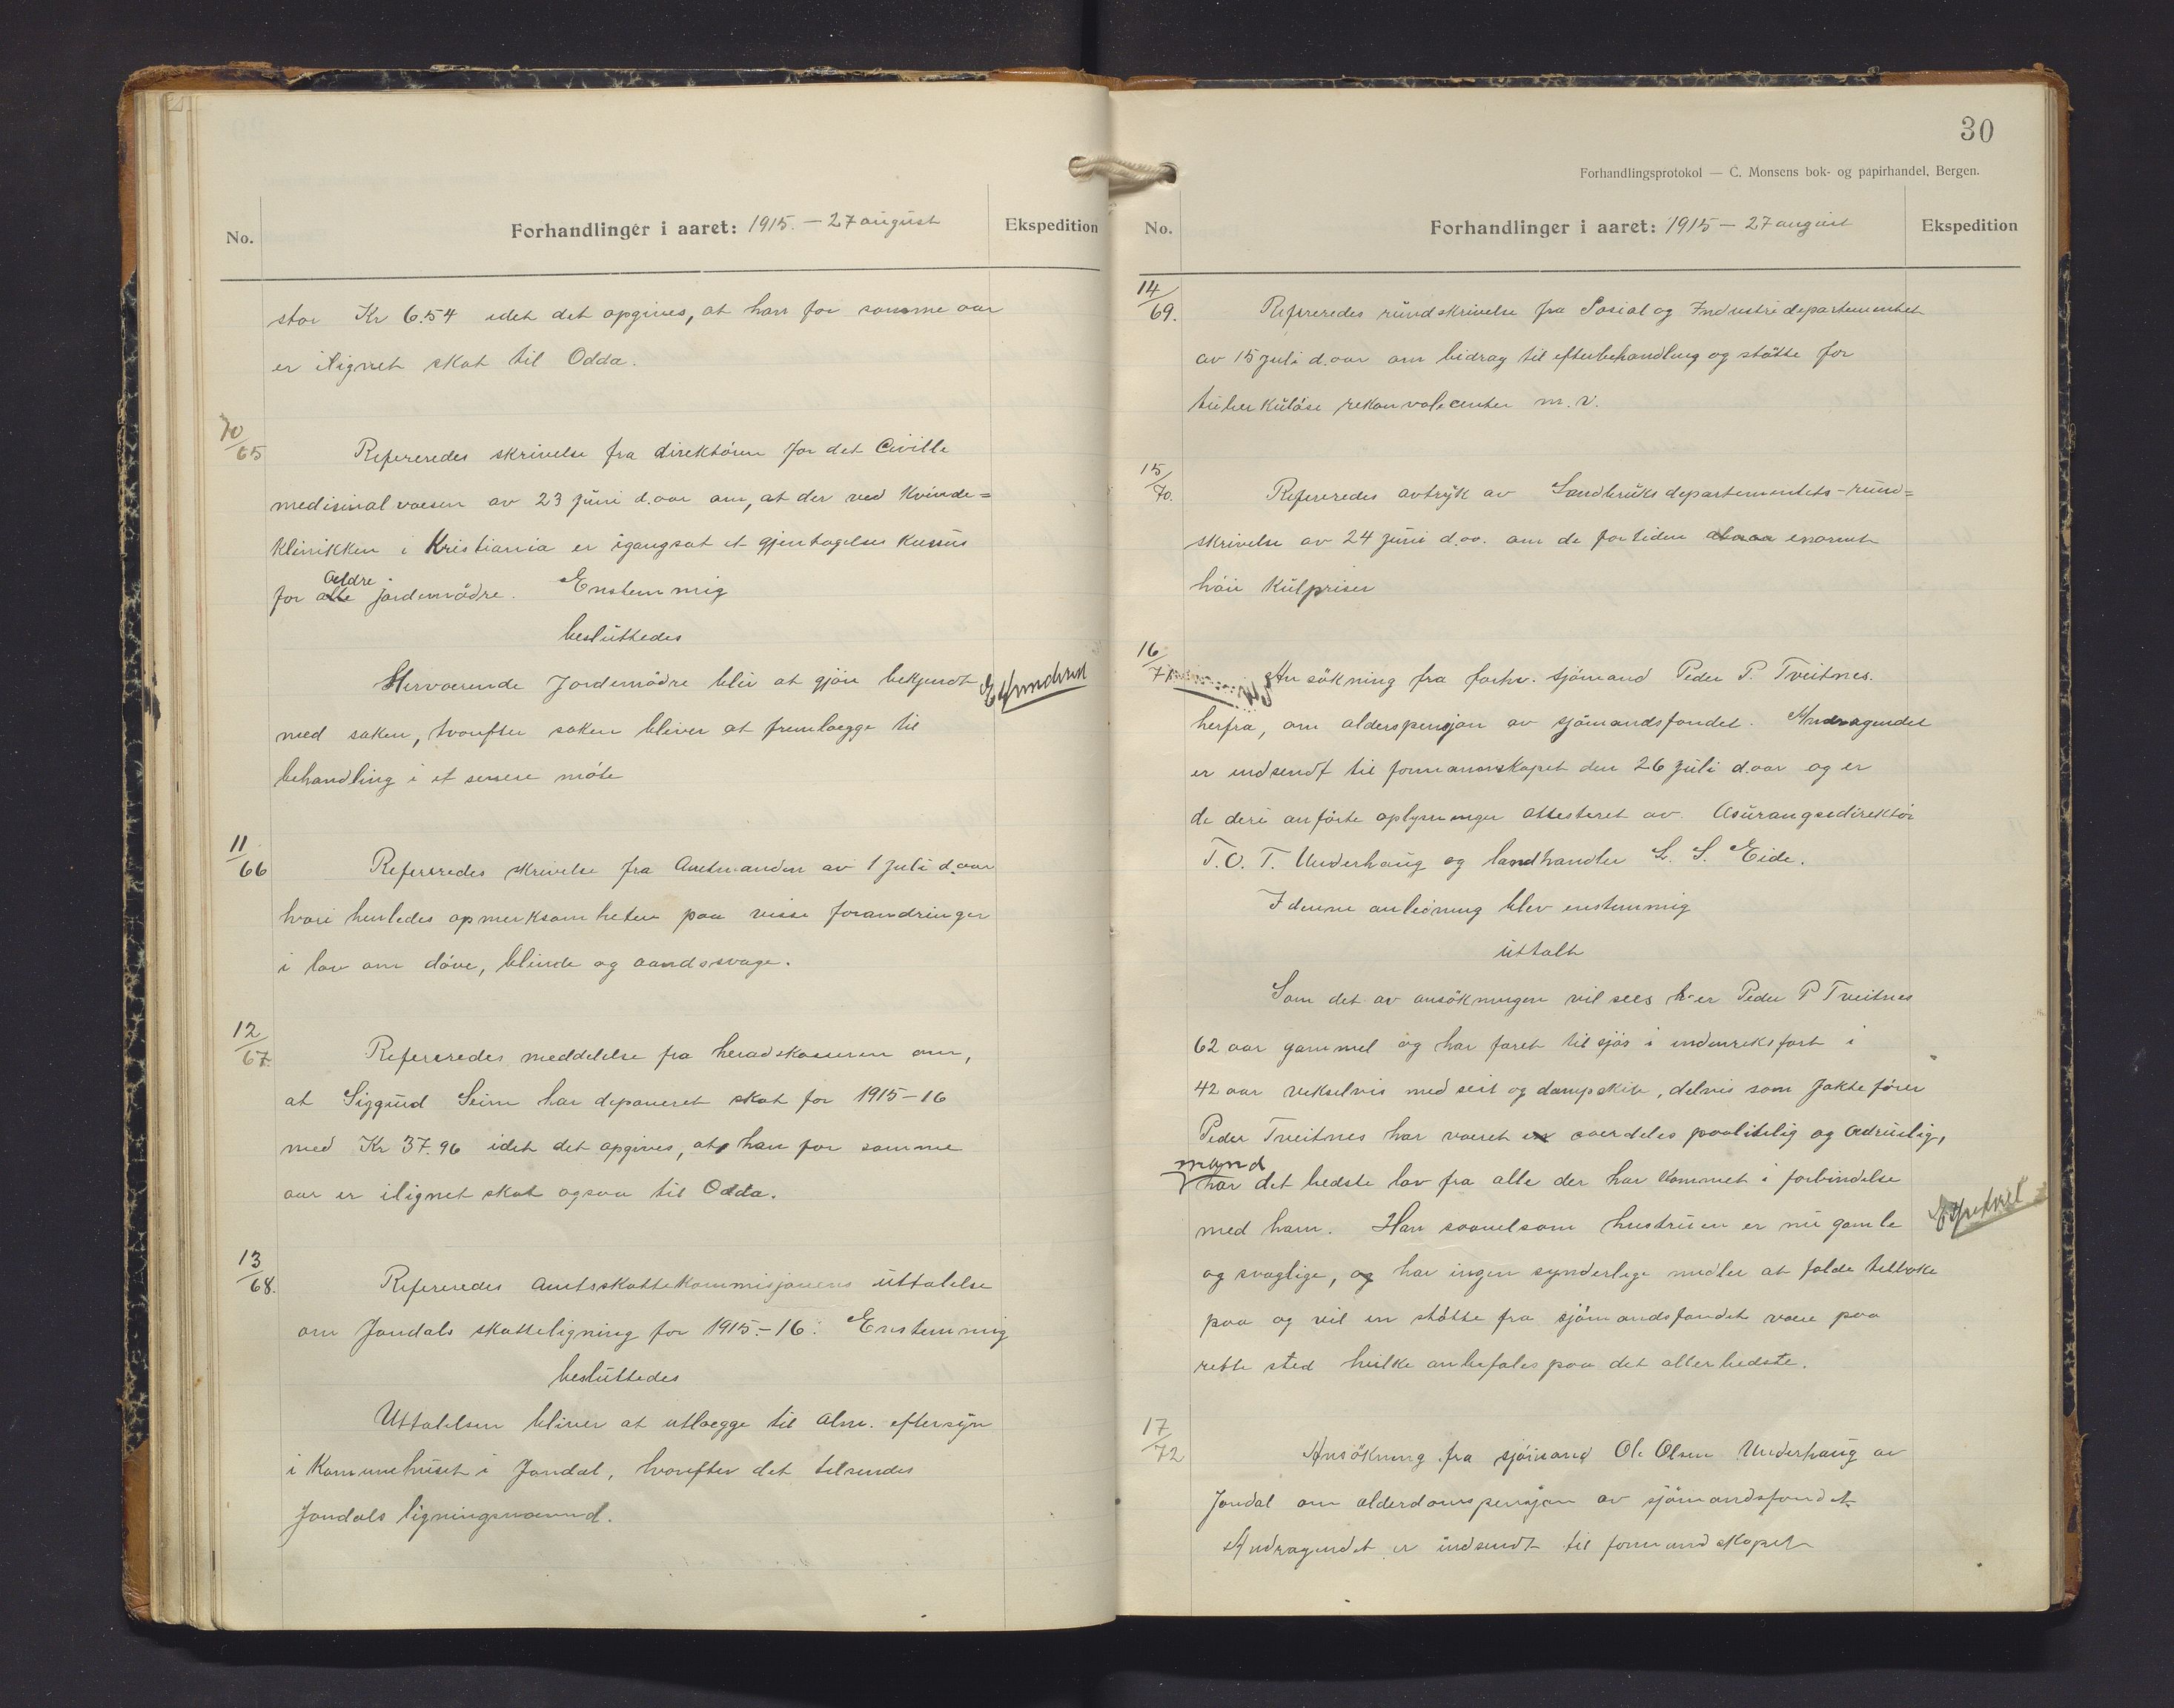 No.
Forhandlinger i aaret: 1915. – 27 august
Ekspedition
stor Kr 6.54 idet det opgives, at han for samme aar
er ilignet skat til Odda.
10/65
Refereredes skrivelse fra direktören for det Civille
medisinalvæsen av 23 juni d.aar om, at der ved Kvinde=
klinikken i Kristiania er igangsat et gjentagelses kursus
for alle jordemödre. Enstemmig
Ældre
besluttedes
Herværende Jordemödre blir at gjöre bekjendt
med saken, hvorefter saken bliver at fremlægge til
behandling i et senere möte
11/66
Refereredes skrivelse fra Amtmanden av 1 juli d.aar
hvori henledes opmerksomheten paa visse forandringer
i lov om döve, blinde og aandssvage.
12/67.
Refereredes meddelelse fra heradskasseren om,
at Siggurd Seim har deponeret skat for 1915–16
med Kr 37.96 idet det opgives, at han for samme
aar er ilignet skat ogsaa til Odda.
13/68.
Refereredes Amtsskattekommisjonens uttalelse
om Jondals skatteligning for 1915.–16. Enstemmig
besluttedes
Uttalelsen bliver at utlægge til alm. eftersyn
i Kommunehuset i Jondal, hvorefter det tilsendes
Jondals ligningsnævnd.
30
Forhandlingsprotokol — C. Monsens bok- og papirhandel, Bergen.
No.
Forhandlinger i aaret: 1915 – 27 august
Ekspedition
14/69.
Refereredes rundskrivelse fra Sosial og Industridepartementet
av 15 juli d.aar om bidrag til efterbehandling og stötte for
tuberkulöse rekonvalecenter m.v.
15/70.
Refereredes avtryk av Landbruksdepartementets-rund=
skrivelse av 24 juni d.aa. om de for tiden enormt
höie kulpriser
16/71
Ansökning fra forhv. sjömand Peder P. Tveitnes.
herfra, om alderspensjon av sjömandsfondet. Andragendet
er indsendt til formannskapet den 26 juli d.aar og er
de deri anförte oplysninger attesteret av Asurangsedirektör
T. O. T. Underhaug og landhandler L. S. Eide.
I denne anledning blev enstemmig
uttalt
Som det av ansökningen vil sees er Peder P Tveitnes
62 aar gammel og har faret til sjös i indenriksfart i
42 aar vekselvis med seil og dampskibe, delvis som Jaktefører
Peder Tveitnes har været en særdeles paalitelig og ædruelig,
mand
har det bedste lov fra alle der har kommet i forbindelse
med ham. Han saavelsom hustruen er nu gamle
og svaglige, og har ingen synderlige midler at falde tilbake
paa og vil en stötte fra sjömandsfondet være paa
rette sted hvilke anbefales paa det allerbedste.
17/72
Ansökning fra sjömand Ole Olsen Underhaug av
Jondal om alderdomspensjon av sjömandsfondet
Andragendet er indsendt til formandskapet